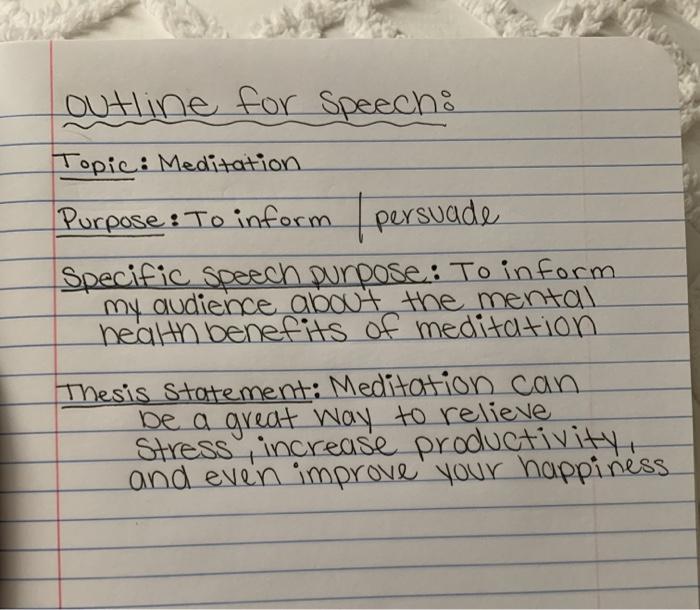 Outline for Speech:
Topic: Meditation
Purpose: To inform / persuade
Specific speech purpose: To inform
my audience about the mental
health benefits of meditation
Thesis Statement: Meditation can
be a great way to relieve
stress, increase productivity,
and even improve your happiness